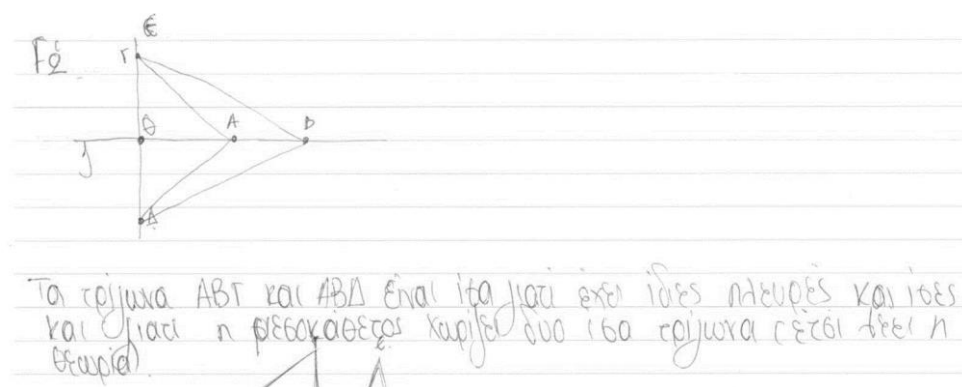 Γ2
ε
Γ
Θ
Α
Β
Δ
Τα τρίγωνα ΑΒΓ και ΑΒΔ είναι ίσα γιατί έχει ίδιες πλευρές και ίσες
και γιατί η μεσοκάθετος χωρίζει δύο ίσα τρίγωνα (έτσι λέει η
θεωρία).